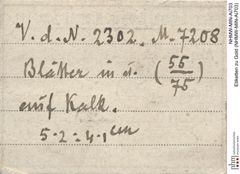 V. d. N. 2302. M. 7208
Blätter in d. (55/75)
auf Kalk.
5·2 = 4·1 cm
NHMW-MIN-A(703)
Etiketten zu Gold (NHMW-MIN-A(703)
nhm